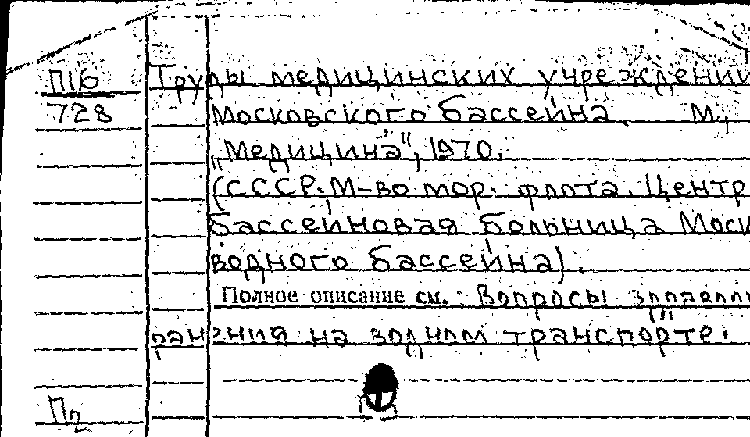 П16 Труды медицинских учреждений
728 Московского бассейна. М.,
„Медицина", 1970.
(СССР. М-во мор. флота. Центр
бассейновая больница Моск
водного бассейна).
Полное описание см.: Вопросы здравоох
ранения на водном транспорте.
Пп